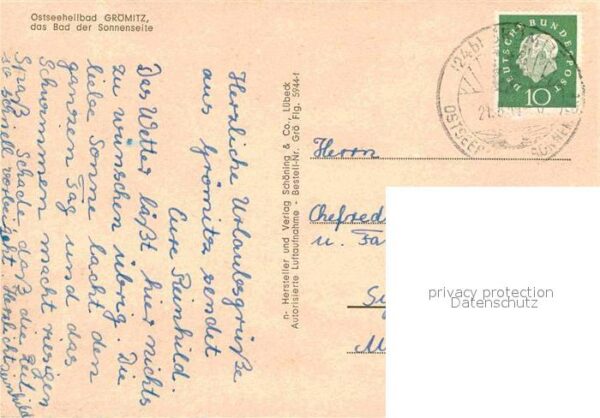 Ostseeheilbad GRÖMITZ,
das Bad der Sonnenseite
Herzliche Urlaubsgrüße
aus Grömitz sendet
Eure Reinhild.
Das Wetter läßt hier nichts
zu wünschen übrig. Die
liebe Sonne lacht den
ganzen Tag und das
Schwimmen macht riesigen
Spaß. Schade daß die Zeit
so schnell vorbeigeht. Herzlichst Reinhild
n- Hersteller und Verlag Schöning & Co., Lübeck
Autorisierte Luftaufnahme - Bestell-Nr. Grö Flg. 5944-t
DEUTSCHE BUNDESPOST
10
(24b)
OSTSEE
Herrn
Chefred
u. Fa
privacy protection
Datenschutz